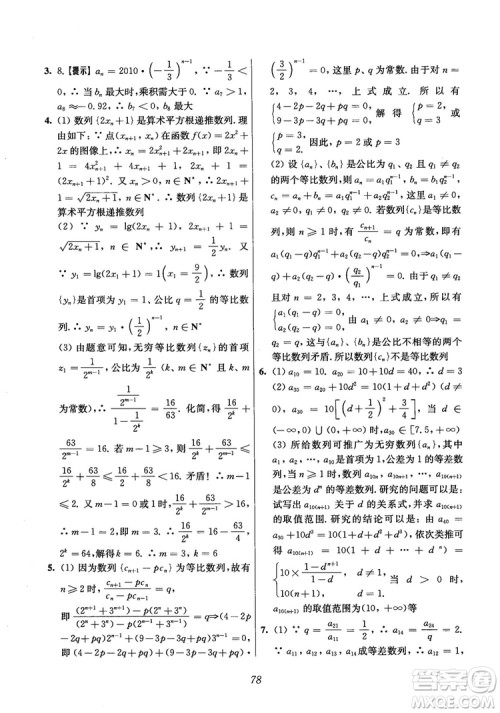 3. 8.【提示】a_n = 2010·(-1/3)^{n-1}, ∵ -1/3 <
0, ∴ 当 b_n 最大时, n 为奇数. ∵ a_7 > 1,
a_9 ≈ -0.92, ∴ n > 8 最大
4. (1) 数列{2x_n+1}是算术平方根递推数列.
理由如下: ∵ 点(x_n, x_{n+1})在函数 f(x) = 2x² +
2x 的图象上, ∴ x_{n+1} = 2x_n² + 2x_n, 即2x_{n+1} +
1 = 4x_n² + 4x_n + 1, n ∈ N*. ∴ 2x_{n+1} + 1 =
(2x_n+1)². ∵ x_n > 0, n ∈ N*, ∴ 2x_n + 1 =
√(2x_{n+1}+1), n ∈ N*. ∴ 数列{2x_n+1}是
算术平方根递推数列
(2) ∵ y_n = lg(2x_n+1), 2x_n + 1 =
√(2x_{n+1}+1), n ∈ N*, ∴ y_{n+1} = 1/2 y_n.
又 ∵ y_1 = lg(2x_1+1) = 1 (x_1 = 9/2), ∴ 数列
{y_n}是首项为 y_1 = 1, 公比 q = 1/2 的等比数
列. ∴ y_n = y_1·(1/2)^{n-1} = (1/2)^{n-1}, n ∈ N*
(3) 由题意可知, 无穷等比数列{z_n}的首项
z_1 = 1/2^{m-1}, 公比为 1/2^k (k、m ∈ N* 且 k、m
为常数), ∴ (1/2^{m-1})/(1-1/2^k) = 16/63. 化简, 得 16/2^k +
63/2^{m-1} = 16. 若 m-1 ≥ 3, 则 16/2^k + 63/2^{m-1} ≤
16/2 + 63/8 < 16. 这与 16/2^k + 63/2^{m-1} = 16 矛盾! ∴ m-1
≤ 2. 又 ∵ m-1 = 0 或 1 时, 16/2^k + 63/2^{m-1} > 16,
∴ m-1 = 2, 即 m = 3. ∴ 16/2^k = 16 - 63/4. ∴
2^k = 64, 解得 k = 6
5. (1) 因为数列{c_{n+1} - pc_n}为等比数列, 故有
n ≥ 2 时, (c_{n+1} - pc_n)/(c_n - pc_{n-1}) = q,
即 [(2^{n+1}+3^{n+1}) - p(2^n+3^n)]/[(2^n+3^n) - p(2^{n-1}+3^{n-1})] = q ⇒ (4-2p-
2q+pq) + (9-3p-3q+pq)·
(3/2)^{n-1} = 0. 由于 p、q 为常数, 而 n =
2, 3, … 时, 上式成立. 所以有
{4-2p-2q+pq=0, 9-3p-3q+pq=0. 解得 {p=2, q=3 或
{p=3, q=2. 因此, p = 2 或 p = 3
(2) 设{a_n}、{b_n}是公比为 q_1、q_2 (q_1 ≠ q_2)
的两个等比数列, 则 a_n = a_1q_1^{n-1}, b_n =
b_1q_2^{n-1}. c_n = a_n + b_n = a_1q_1^{n-1} + b_1q_2^{n-1}. 若数列
{c_n}为等比数列, 则有 n ≥ 1 时, c_{n+1}/c_n = q,
即 (a_1q_1^n + b_1q_2^n)/(a_1q_1^{n-1} + b_1q_2^{n-1}) = q(q 为常数) ⇒
a_1(q_1-q) + b_1(q_2-q)·(q_2/q_1)^{n-1} = 0.
且 n = 1, 2, 3, … 时, 上式成立, 所以有
{a_1(q_1-q)=0, b_1(q_2-q)=0 ⇒ {q_1=q, q_2=q ⇒ q_1 =
q_2 = q. 这与{a_n}、{b_n}是公比不相等的两个
等比数列矛盾. 所以{c_n}不是等比数列
6. (1) a_10 = 10, a_20 = 10 + 10d = 40, ∴ d = 3
(2) a_30 = a_20 + 10d² = 10(1+d+d²) (d ≠
0), a_30 = 10[(d+1/2)²+3/4], 当 d ∈
(-∞, 0) ∪ (0, +∞) 时, a_30 ∈ [7.5, +∞)
(3) 所给数列可推广为无穷数列{a_n}, 其中
a_1, a_2, …, a_10 是首项为1, 公差为1的等差
数列. 当 n ≥ 1时, 数列a_{10n}, a_{10n+1}, …, a_{10(n+1)}
是公差为 d^n 的等差数列. 研究的问题可以
是: 试写出 a_{10(n+1)} 关于 d 的关系式, 并求 a_{10(n+1)}
的取值范围. 研究的结论可以是: 由 a_40 =
a_30 + 10d³ = 10(1+d+d²+d³), 依次类推可
得 a_{10(n+1)} = 10(1+d+…+d^n) =
{10×(1-d^{n+1})/(1-d), d≠1, 10(n+1), d=1. 当 d > 0 时, a_{10(n+1)}
的取值范围为(10, +∞)等
7. (1) ∵ q = a_21/a_11 = 1/2, ∴ a_14 = a_24/q = 2.